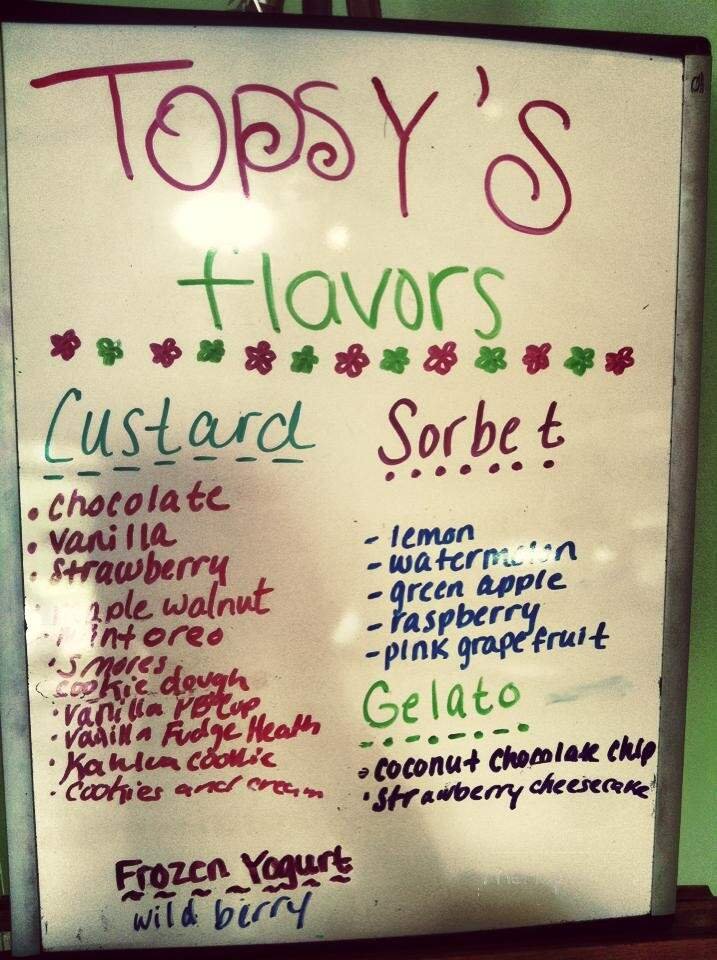 TOPSY'S
flavors
Custard
• chocolate
• vanilla
• strawberry
maple walnut
• mint oreo
• smores
cookie dough
• vanilla PB cup
• vanilla Fudge Heath
• Kahlua cookie
• cookies and cream
Sorbet
- lemon
- watermelon
- green apple
- raspberry
- pink grapefruit
Gelato
• coconut chocolate chip
• strawberry cheesecake
Frozen Yogurt
wild berry